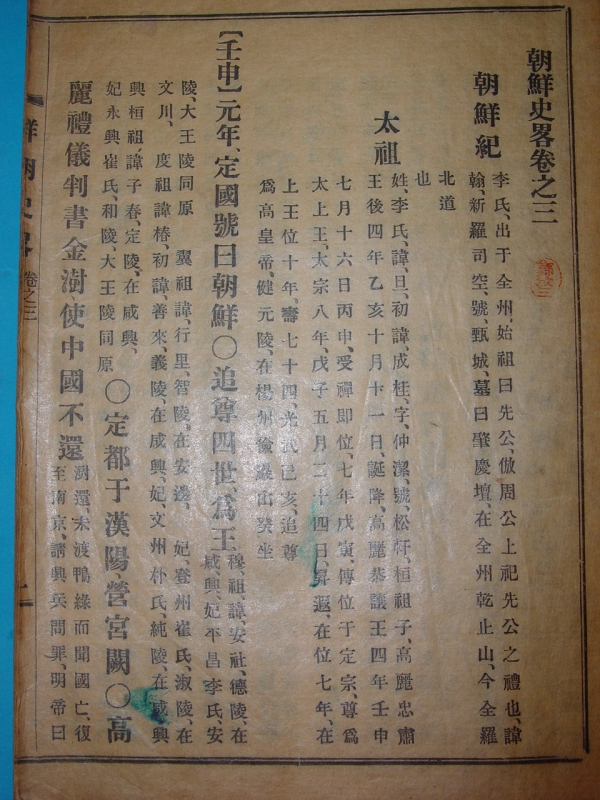 朝鮮史畧卷之三
朝鮮紀
李氏、出于全州、始祖曰先公、倣周公上祀先公之禮也、諱
翰、新羅司空、號、甄城、墓曰肇慶壇、在全州乾止山、今全羅
北道
也
太祖
姓李氏、諱、旦、初諱、成桂、字、仲潔、號、松軒、桓祖子、高麗忠肅
王後四年乙亥十月十一日、誕降、高麗恭讓王四年壬申
七月十六日丙申、受禪即位、七年戊寅、傳位于定宗、尊爲
太上王、太宗八年、戊子五月二十四日、昇遐、在位七年、在
上王位十年、壽七十四、光武己亥、追尊
爲高皇帝、健元陵、在楊州儉巖山癸坐
【壬申】元年、定國號曰朝鮮〇追尊四世、爲王
穆祖、諱、安社、德陵、在
咸興、妃平昌李氏、安
陵、大王陵同原 翼祖諱、行里、智陵、在安邊、妃、登州崔氏、淑陵、在
文川、度祖諱椿、初諱、善來、義陵在咸興、妃、文州朴氏、純陵、在咸興
興桓祖、諱子春、定陵、在咸興、
妃永興崔氏、和陵、大王陵同原
〇定都于漢陽、營宮闕〇高
麗禮儀判書金澍、使中國不還
澍還、未渡鴨綠而聞國亡、復
至南京、請興兵問罪、明帝曰
史畧 卷之三